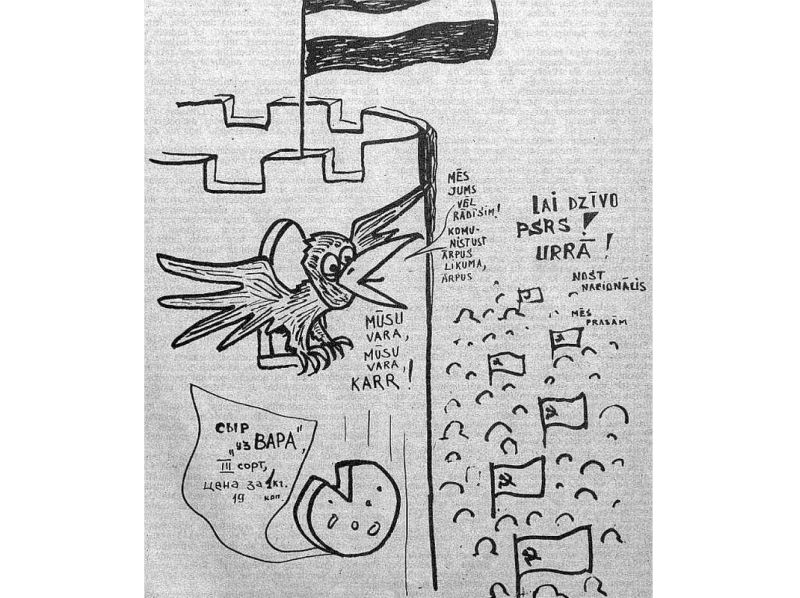 MĒS
JUMS
VĒL
RĀDĪSIM!
KOMU-
NISTUS!
ĀRPUS
LIKUMA,
ĀRPUS
LAI DZĪVO
PSRS!
URRĀ!
NOST
NACIONĀLIS
MĒS
PRASĀM
MŪSU
VARA,
MŪSU
VARA,
KARR!
СЫР
„из ВАРА",
III сорт,
Цена за 1 кг.
19 коп.